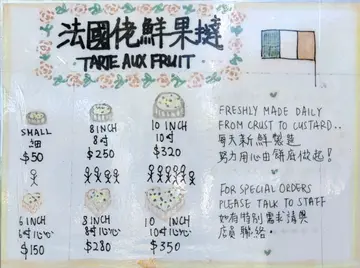 法國佬鮮果撻
TARTE AUX FRUIT
SMALL
細
$50
8 INCH
8吋
$250
10 INCH
10吋
$320
6 INCH
6吋心心
$150
8 INCH
8吋心心
$280
10 INCH
10吋心心
$350
FRESHLY MADE DAILY
FROM CRUST TO CUSTARD..
每天新鮮製造
努力用心由餅底做起!
FOR SPECIAL ORDERS
PLEASE TALK TO STAFF
如有特別需求請與
店員聯絡.